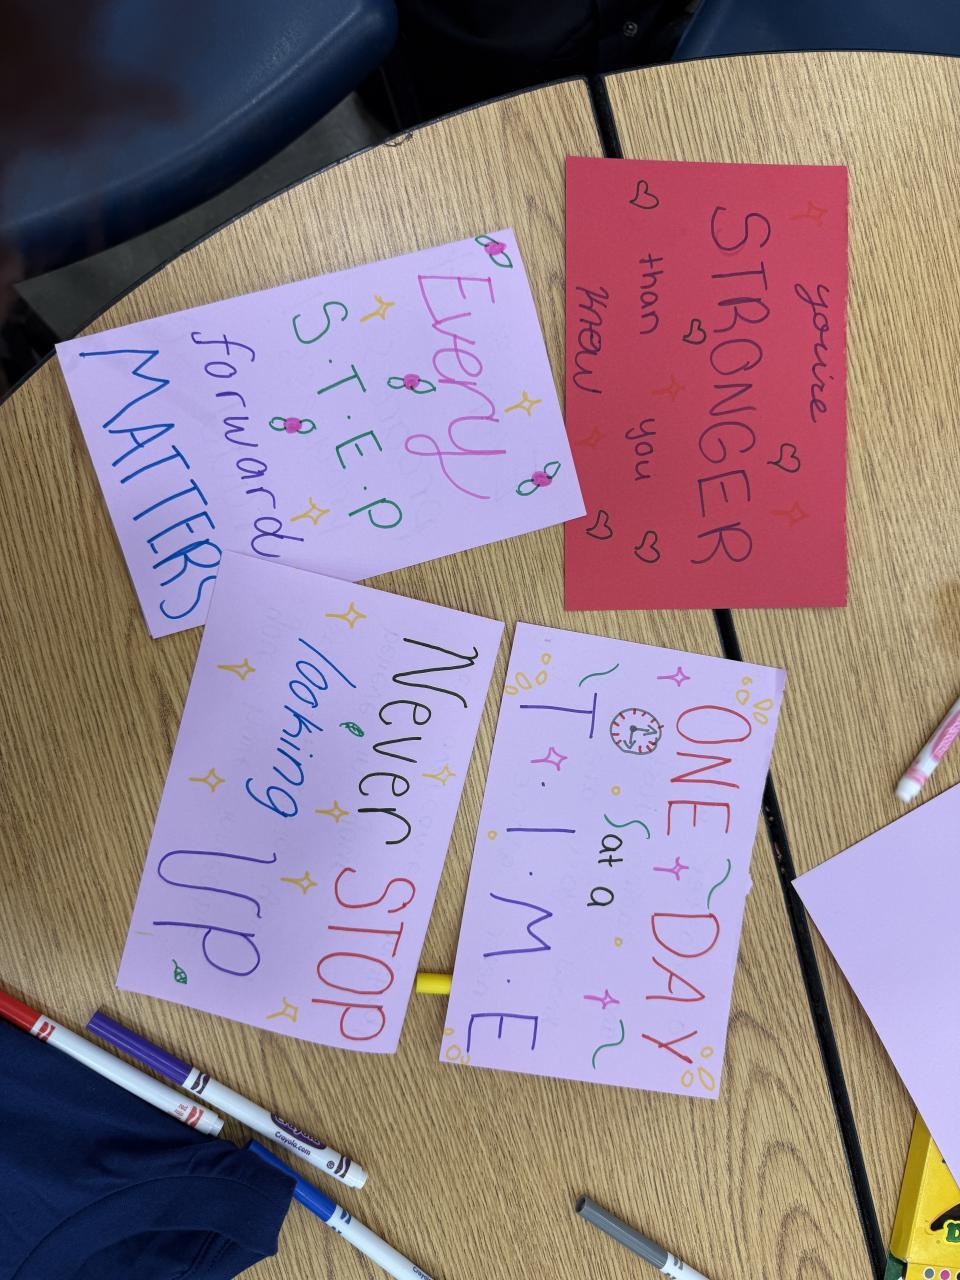 you're
STRONGER
than you
know
Every
S.T.E.P
forward
MATTERS
ONE DAY
at a
T.I.M.E
Never STOP
looking
UP
Crayola
Crayola.com